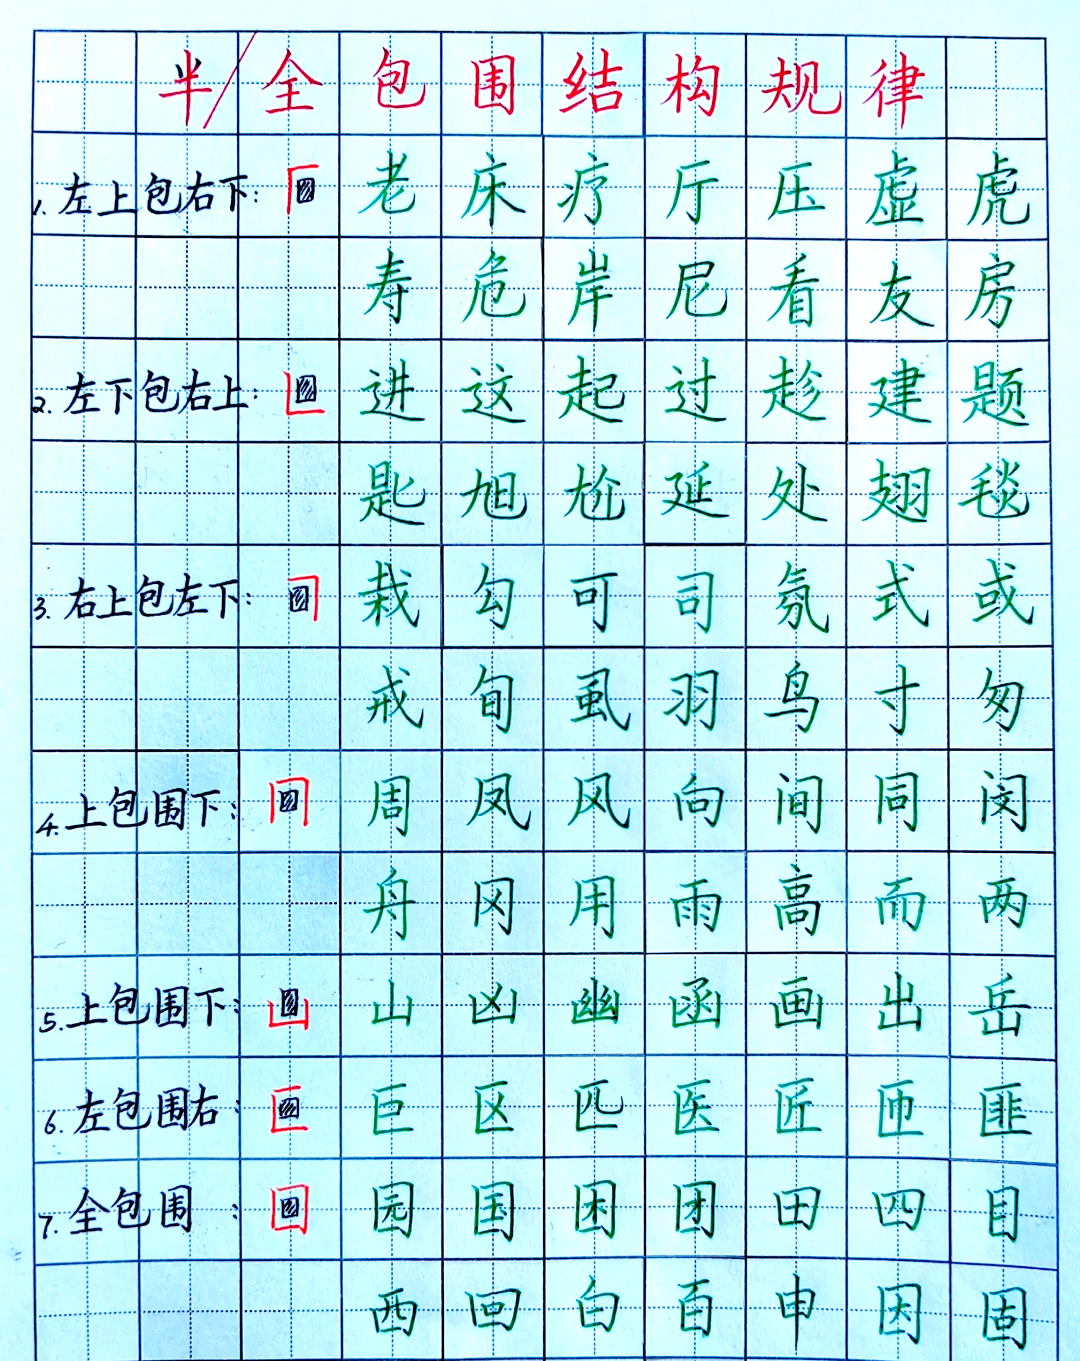 半/全包围结构规律
1.左上包右下:老床疗厅压虚虎
寿危岸尼看友房
2.左下包右上:进这起过趁建题
匙旭尬延处翅毯
3.右上包左下:栽勾可司氛式或
戒旬虱羽鸟寸匆
4.上包围下:周凤风向间同闵
舟冈用雨高而两
5.上包围下:山凶幽函画出岳
6.左包围右:巨区匹医匠匝匪
7.全包围:园国困团田四目
西回白百申因固